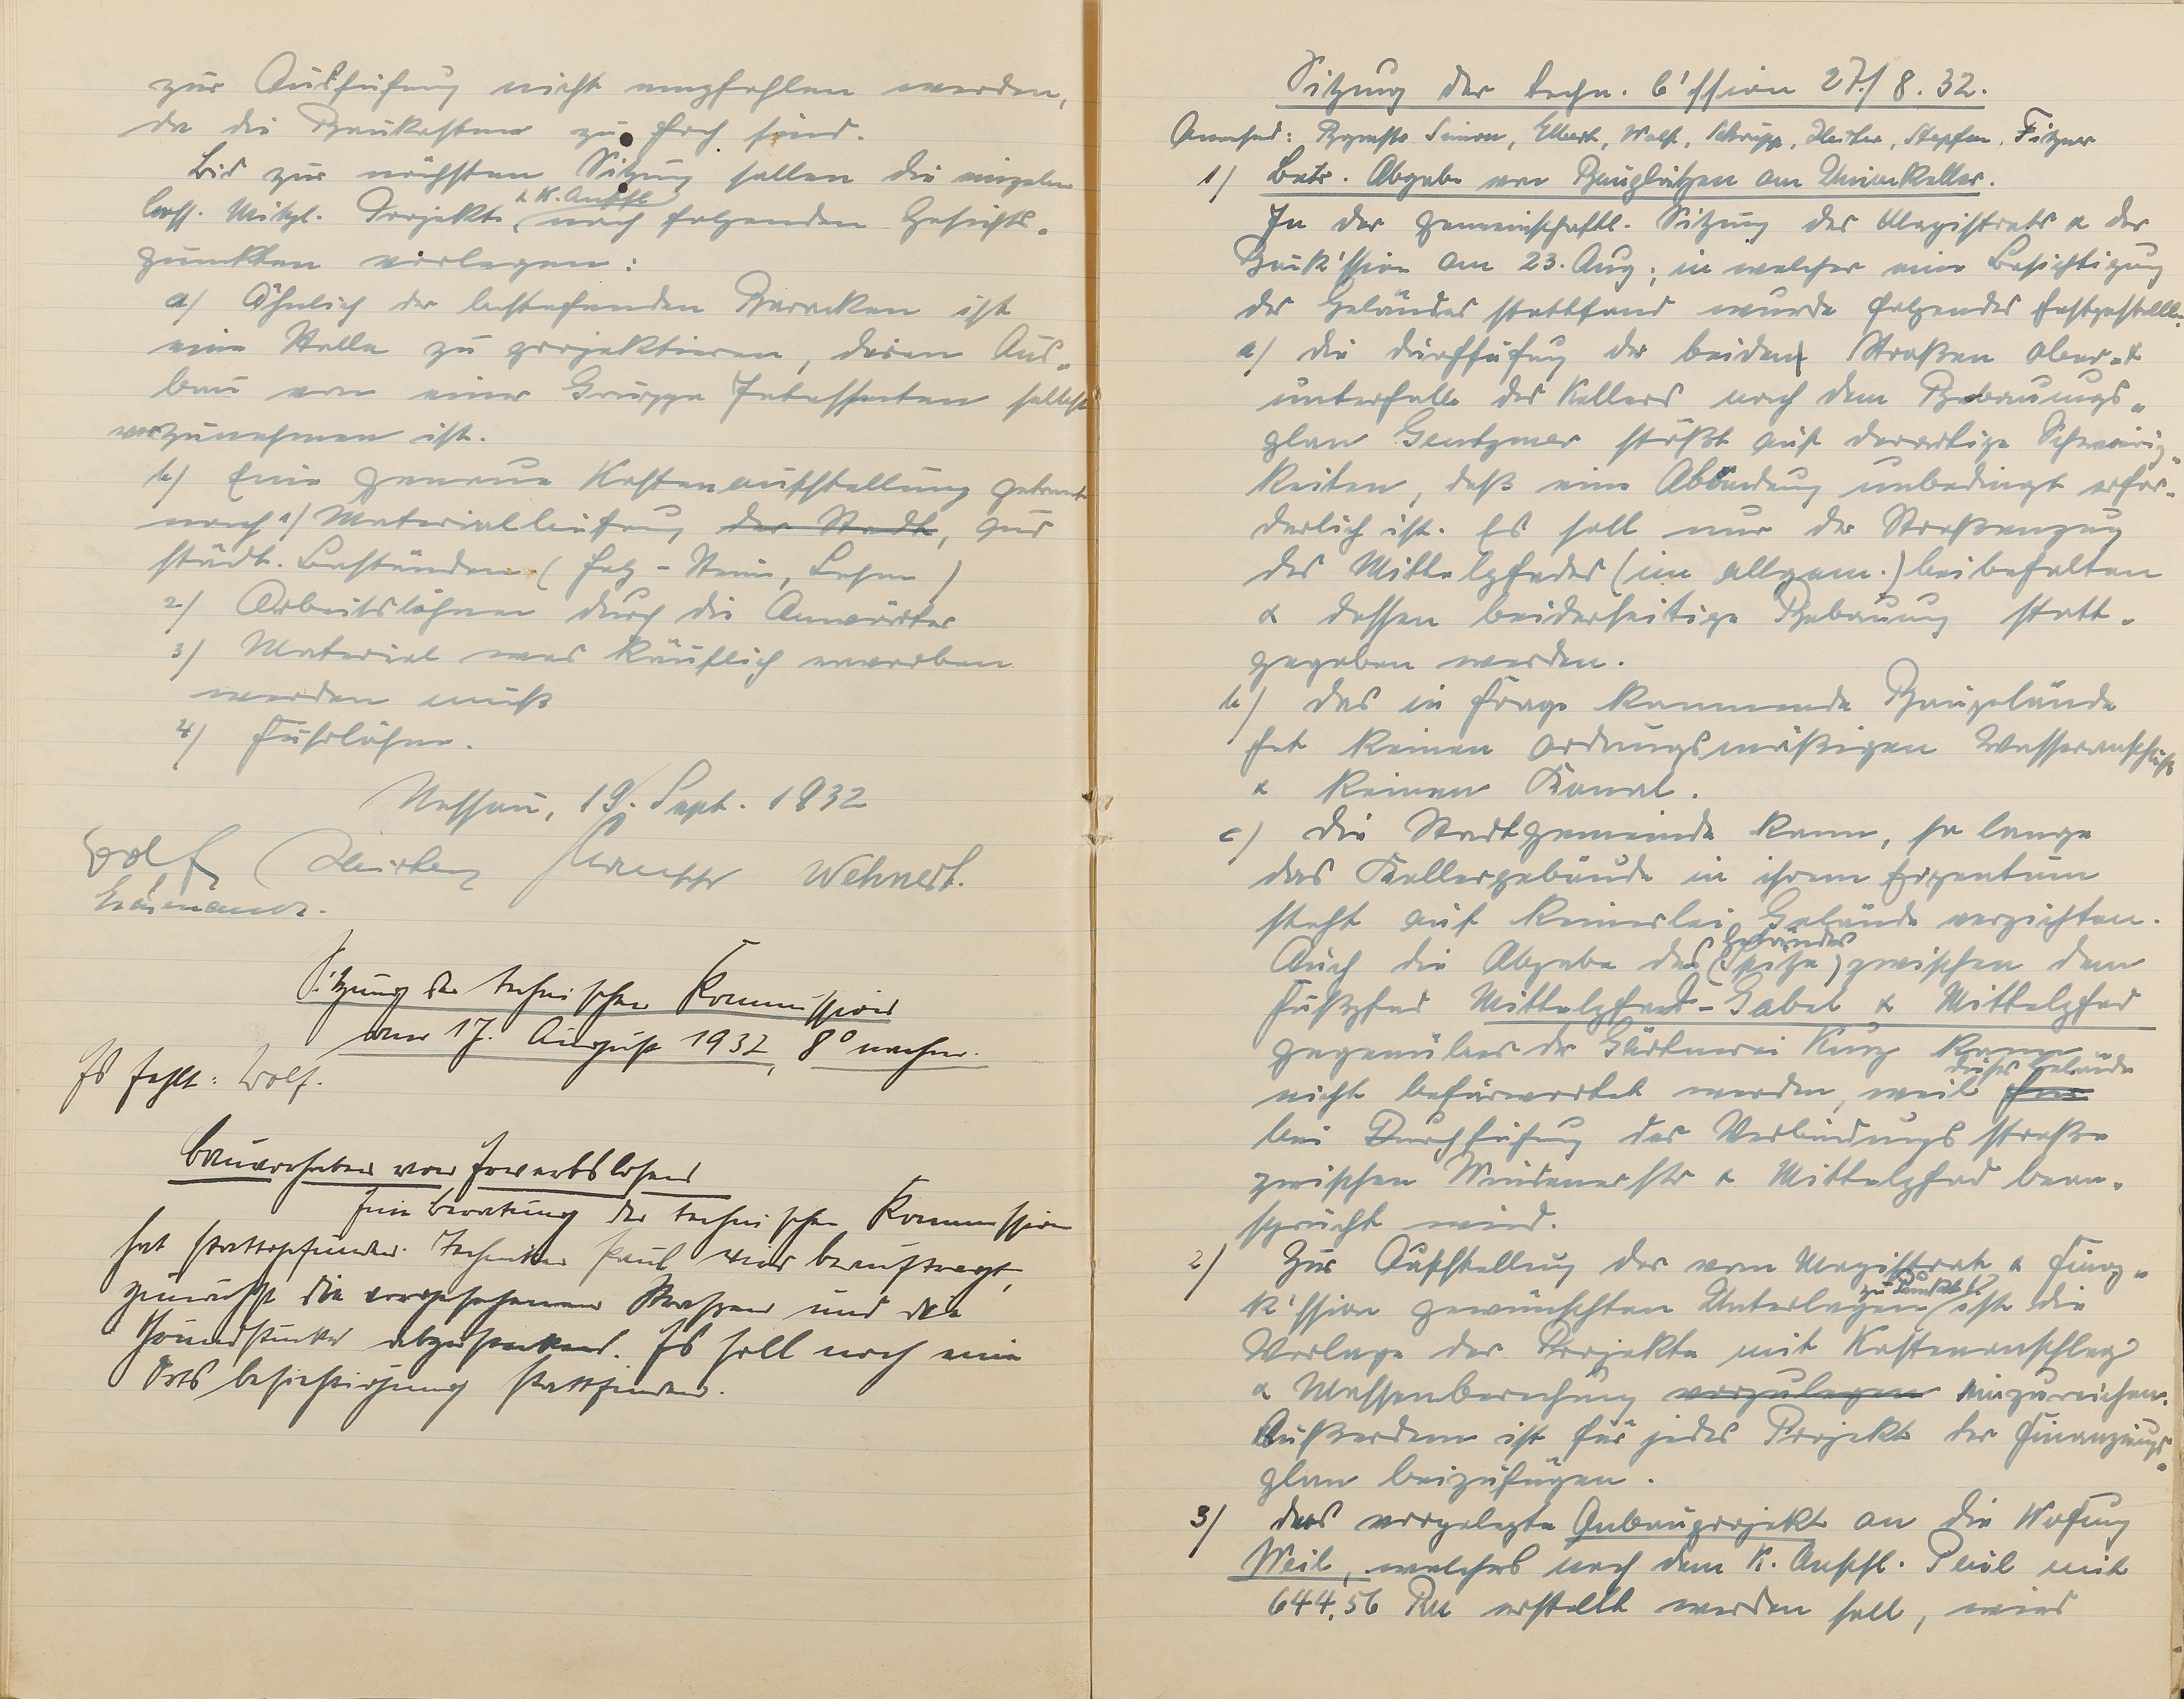 zur Ausführung nicht empfohlen werden,
da die Baukosten zu hoch sind.
Bis zur nächsten Sitzung sollen die einzelnen
Coss. Mitgl. Projekte & K. Anschl. nach folgenden Gesichts-
punkten vorlegen:
a) Ähnlich der bestehenden Baracken ist
eine Stelle zu projektieren, deren Aus-
bau von einer Gruppe Interessenten selbst
vorzunehmen ist.
b) Eine genaue Kostenaufstellung getrennt
nach 1) Materiallieferung der Stadt, aus
städt. Beständen (Holz-Stein, Lehm)
2) Arbeitslöhnen durch die Anwärter
3) Material was käuflich erworben
werden muß
4) Fuhrlöhne.
Nassau, 19. Sept. 1932
Wolf Wehnert.
Sitzung der technischen Kommission
vom 17. August 1932, 8° nachm.
Es fehlt: Wolf.
Bauvorhaben von Erwerbslosen
Eine Beratung der technischen Kommission
hat stattgefunden. Techniker Paul wird beauftragt,
zunächst die vorgesehenen Strassen und die
Grundstücke abzustecken. Es soll noch eine
Ortsbesichtigung stattfinden.
Sitzung der techn. C'ssion 27./8.32.
Anwesend: Simon, Elbert, Wolf, Schrupp, Stephan, Fitzner
1) Betr. Abgabe von Bauplätzen am Unionkeller.
In der gemeinschaftl. Sitzung des Magistrats & der
Bauk'ssion am 23. Aug., in welcher eine Besichtigung
des Geländes stattfand wurde folgendes festgestellt:
a) Die Durchführung der beiden Straßen ober- &
unterhalb des Kellers nach dem Bebauungs-
plan Gentzmer stößt auf derartige Schwierig-
keiten, daß eine Abändrung unbedingt erfor-
derlich ist. Es soll nur der Straßenzug
des Mittelpfades (im allgem.) beibehalten
& dessen beiderseitige Bebauung statt-
gegeben werden.
b) Das in Frage kommende Baugelände
hat keinen ordnungsmäßigen Wasseranschluß
& keinen Kanal.
c) Die Stadtgemeinde kann, so lange
das Kellergebäude in ihrem Eigentum
steht auf keinerlei Gelände verzichten.
Auch die Abgabe des Geländes (Spitze) zwischen dem
Fußpfad Mittelpfad-Gabel & Mittelpfad
gegenüber der Gärtnerei Kunz kann
nicht befürwortet werden, weil dieses Gelände
bei Durchführung der Verbindungsstraße
zwischen Windenerstr & Mittelpfad bean-
sprucht wird.
2) Zur Aufstellung der vom Magistrat & Finanz-
k'ssion gewünschten Unterlagen zu Punkt 1) ist die
Vorlage der Projekte mit Kostenanschlag
& Massenberechnung vorzulegen einzureichen.
Außerdem ist für jedes Projekt der Finanzierungs-
plan beizufügen.
3) Das vorgelegte Anbauprojekt an die Wohnung
Weil, welches nach dem K. Anschl. Paul mit
644,56 RM erstellt werden soll, wird